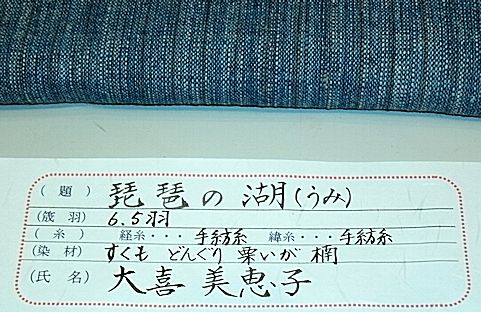 (題) 琵琶の湖(うみ)
(筬羽) 6.5羽
(糸) 経糸・・・手紡糸 緯糸・・・手紡糸
(染材) すくも どんぐり 栗いが 楠
(氏名) 大喜美恵子